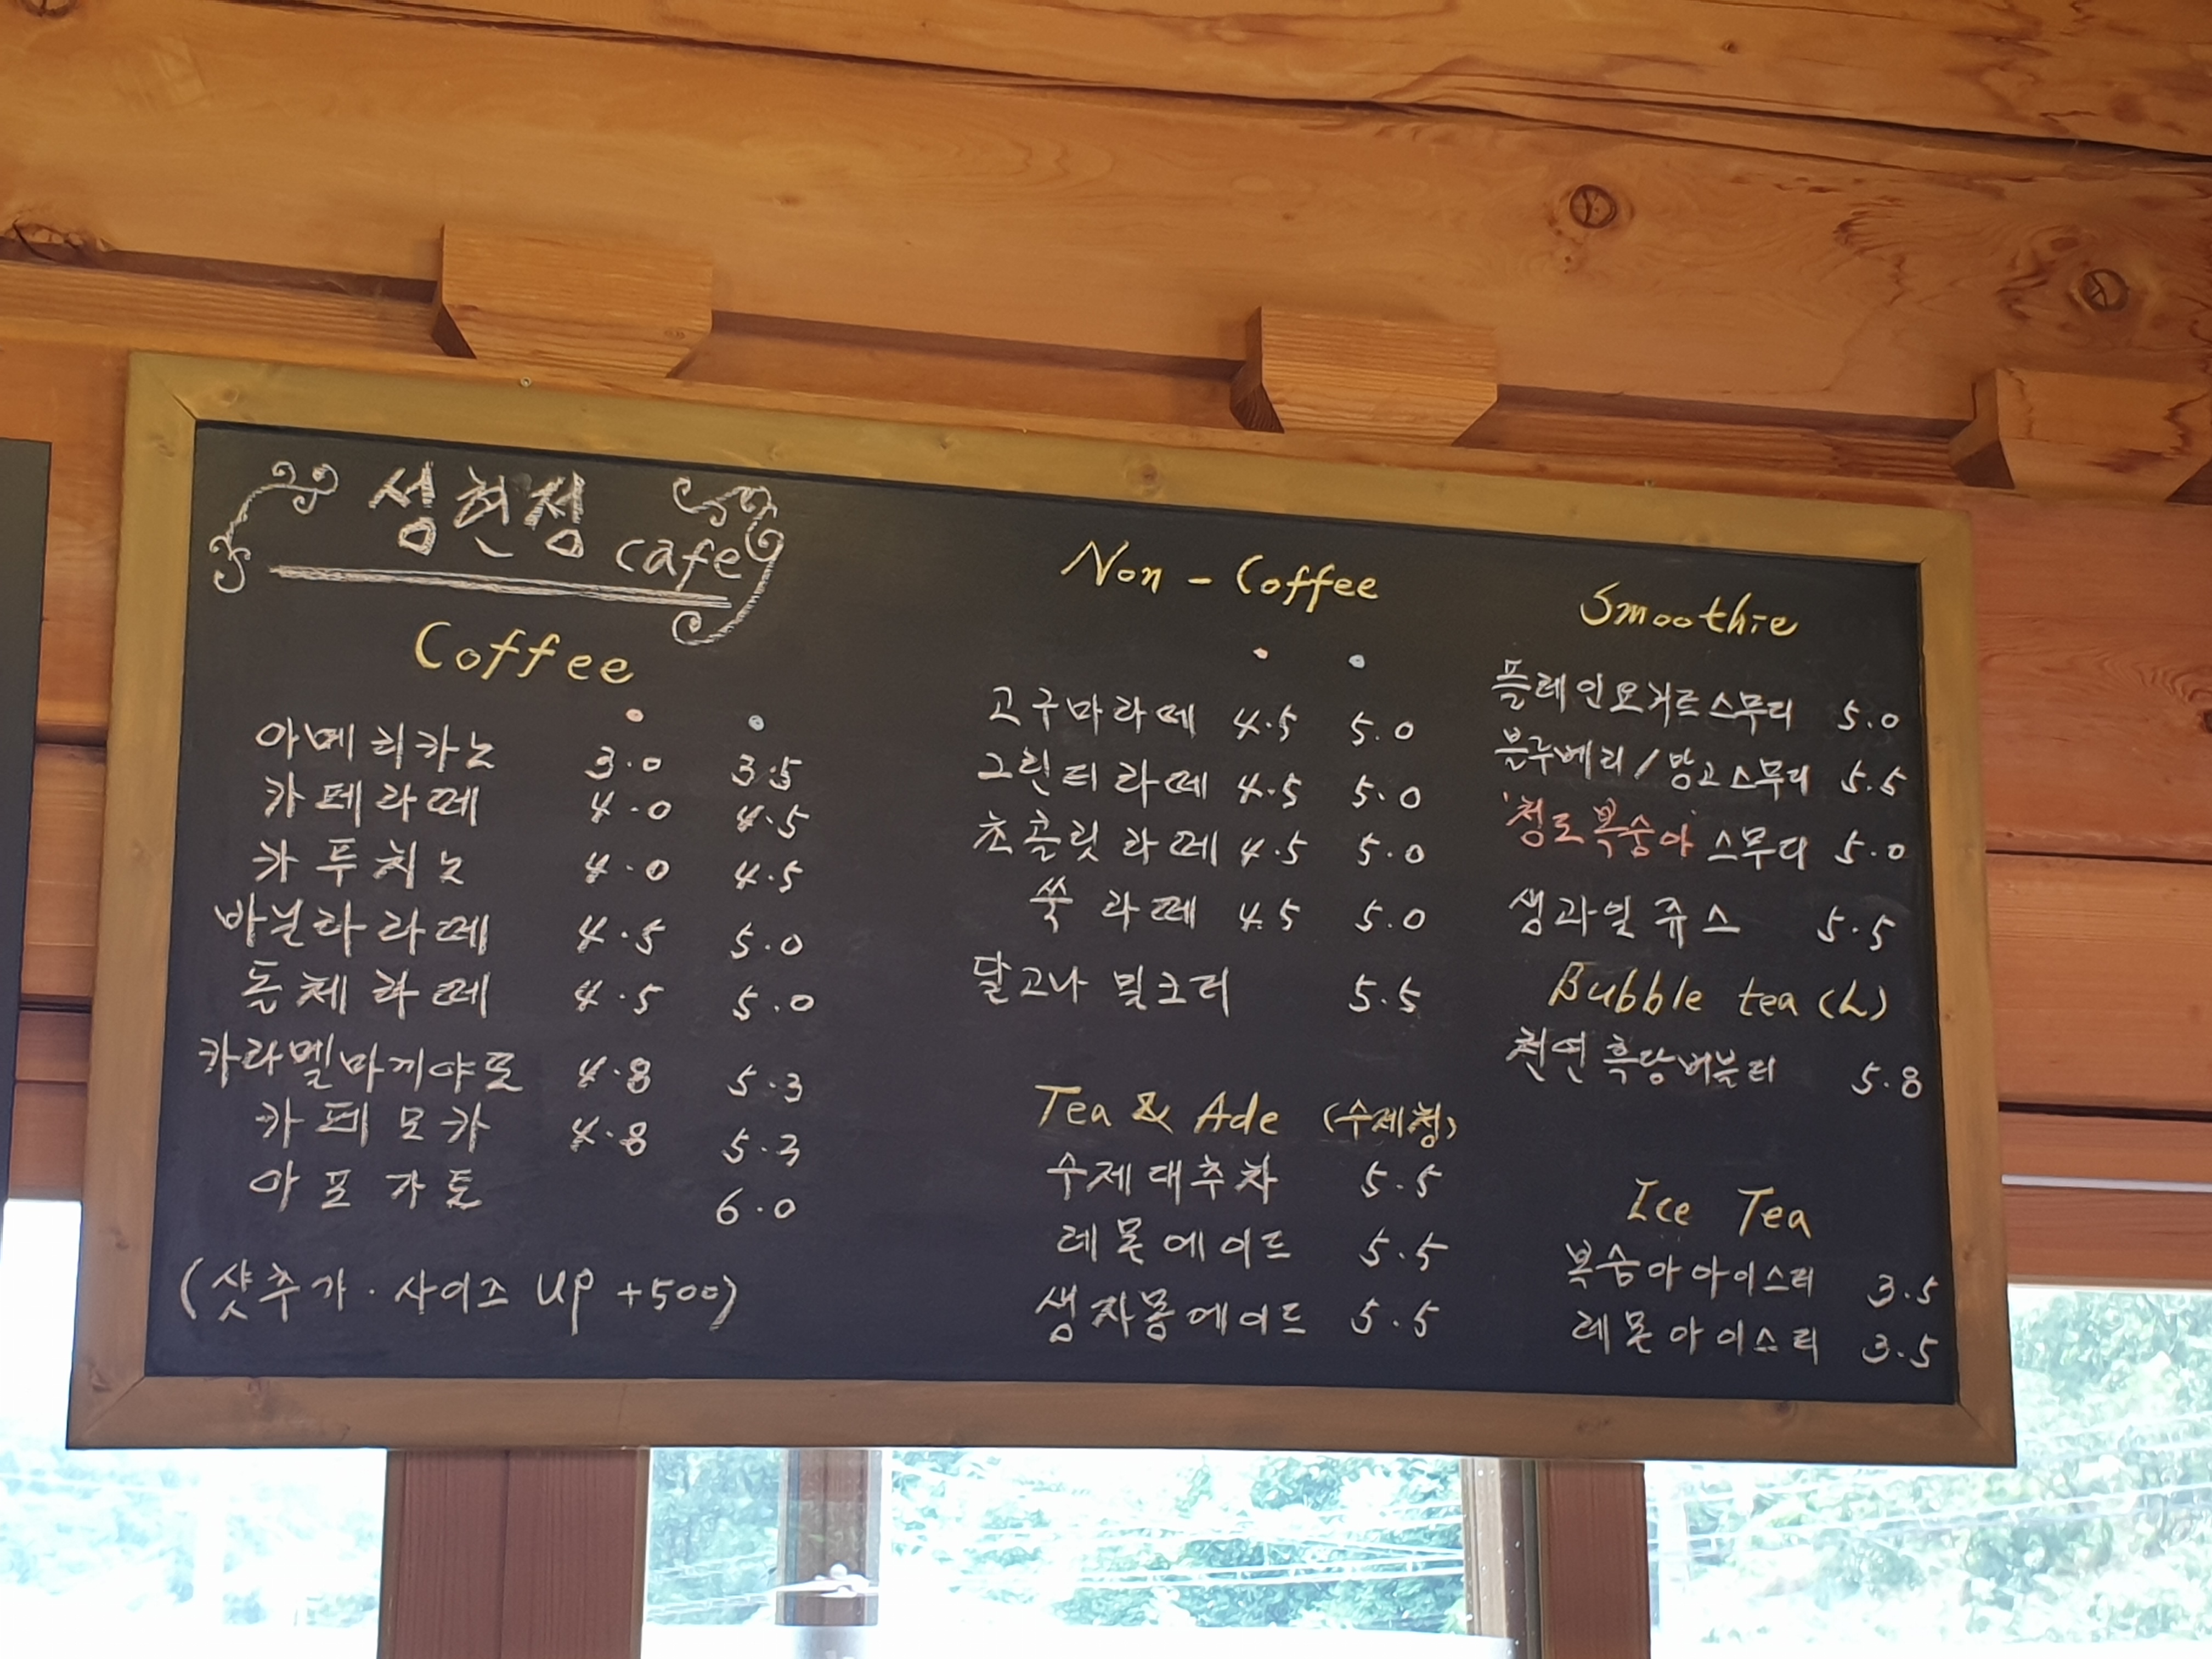 성현정
cafe
Coffee
아메리카노 3.0 3.5
카페라떼 4.0 4.5
카푸치노 4.0 4.5
바닐라라떼 4.5 5.0
돌체라떼 4.5 5.0
카라멜마끼야또 4.8 5.3
카페모카 4.8 5.3
아포가토 6.0
(샷추가 · 사이즈 UP +500)
Non - Coffee
고구마라떼 4.5 5.0
그린티라떼 4.5 5.0
초콜릿라떼 4.5 5.0
쑥라떼 4.5 5.0
달고나 밀크티 5.5
Tea & Ade (수제청)
수제대추차 5.5
레몬에이드 5.5
생자몽에이드 5.5
Smoothie
플레인요거트스무디 5.0
블루베리/망고스무디 5.5
'청도복숭아' 스무디 5.0
생과일쥬스 5.5
Bubble tea (L)
천연흑당버블티 5.8
Ice Tea
복숭아아이스티 3.5
레몬아이스티 3.5